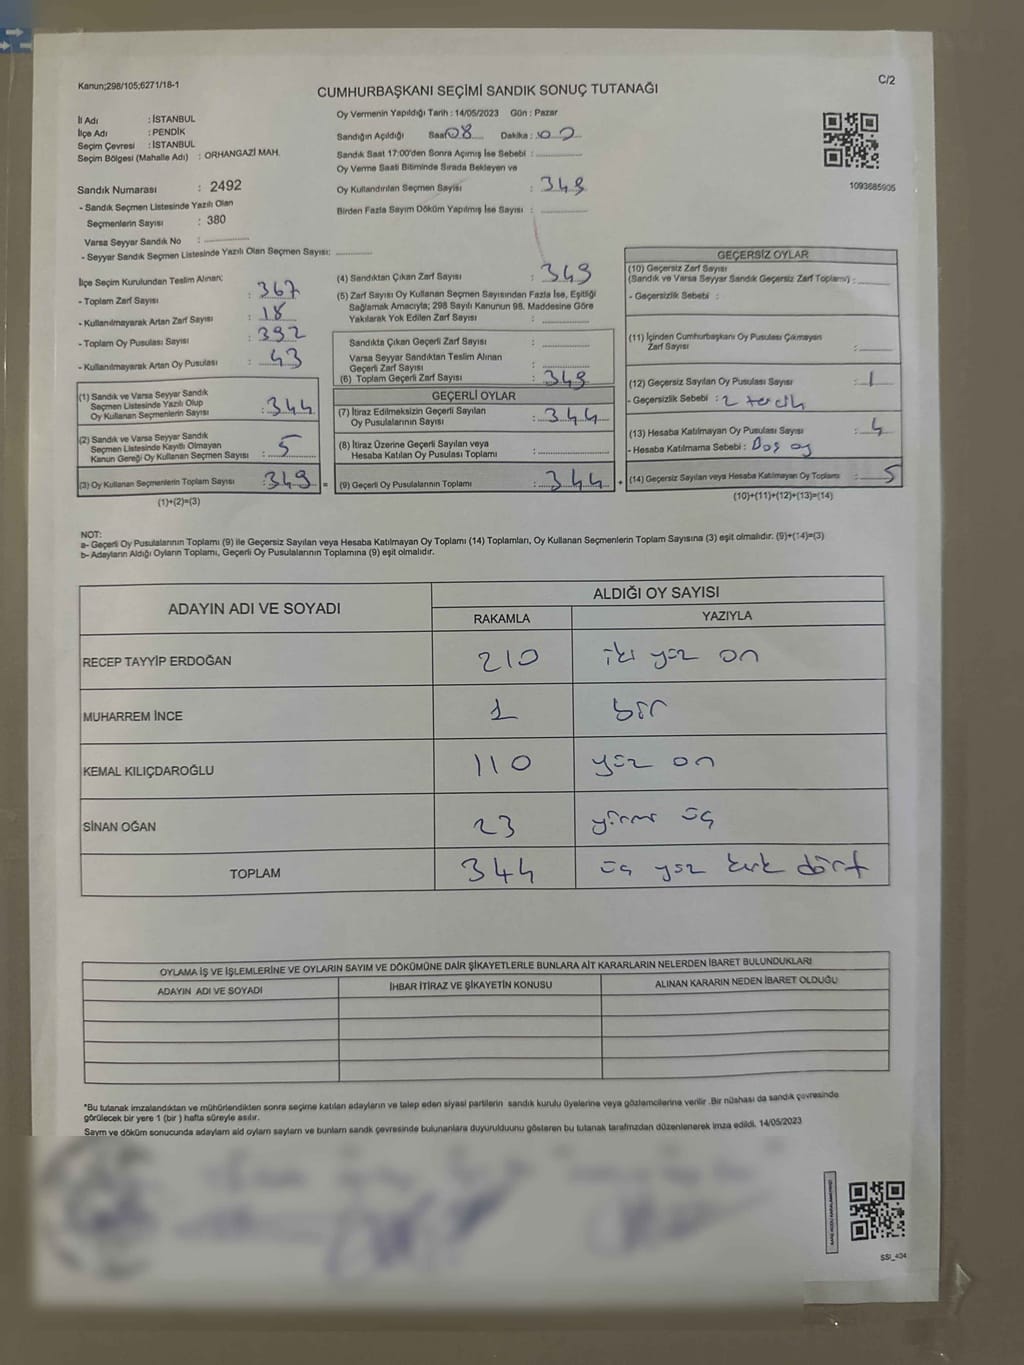 Kanun;298/105;6271/18-1
C/2
CUMHURBAŞKANI SEÇİMİ SANDIK SONUÇ TUTANAĞI
İl Adı : İSTANBUL
İlçe Adı : PENDİK
Seçim Çevresi : İSTANBUL
Seçim Bölgesi (Mahalle Adı) : ORHANGAZİ MAH.
Sandık Numarası : 2492
- Sandık Seçmen Listesinde Yazılı Olan
Seçmenlerin Sayısı : 380
Varsa Seyyar Sandık No :
- Seyyar Sandık Seçmen Listesinde Yazılı Olan Seçmen Sayısı:
Oy Vermenin Yapıldığı Tarih : 14/05/2023 Gün : Pazar
Sandığın Açıldığı Saat 08 Dakika : 00
Sandık Saat 17:00'den Sonra Açımış İse Sebebi :
Oy Verme Saati Bitiminde Sırada Bekleyen ve
Oy Kullandırılan Seçmen Sayısı : 349
Birden Fazla Sayım Döküm Yapılmış İse Sayısı :
1093685905
İlçe Seçim Kurulundan Teslim Alınan:
- Toplam Zarf Sayısı : 367
- Kullanılmayarak Artan Zarf Sayısı : 18
- Toplam Oy Pusulası Sayısı : 392
- Kullanılmayarak Artan Oy Pusulası : 43
(1) Sandık ve Varsa Seyyar Sandık
Seçmen Listesinde Yazılı Olup
Oy Kullanan Seçmenlerin Sayısı : 344
(2) Sandık ve Varsa Seyyar Sandık
Seçmen Listesinde Kayıtlı Olmayan
Kanun Gereği Oy Kullanan Seçmen Sayısı : 5
(3) Oy Kullanan Seçmenlerin Toplam Sayısı : 349 =
(1)+(2)=(3)
(4) Sandıktan Çıkan Zarf Sayısı : 349
(5) Zarf Sayısı Oy Kullanan Seçmen Sayısından Fazla İse, Eşitliği
Sağlamak Amacıyla; 298 Sayılı Kanunun 98. Maddesine Göre
Yakılarak Yok Edilen Zarf Sayısı :
Sandıkta Çıkan Geçerli Zarf Sayısı :
Varsa Seyyar Sandıktan Teslim Alınan
Geçerli Zarf Sayısı :
(6) Toplam Geçerli Zarf Sayısı : 349
GEÇERLİ OYLAR
(7) İtiraz Edilmeksizin Geçerli Sayılan
Oy Pusulalarının Sayısı : 344
(8) İtiraz Üzerine Geçerli Sayılan veya
Hesaba Katılan Oy Pusulası Toplamı :
(9) Geçerli Oy Pusulalarının Toplamı : 344 +
GEÇERSİZ OYLAR
(10) Geçersiz Zarf Sayısı
(Sandık ve Varsa Seyyar Sandık Geçersiz Zarf Toplamı) :
- Geçersizlik Sebebi :
(11) İçinden Cumhurbaşkanı Oy Pusulası Çıkmayan
Zarf Sayısı :
(12) Geçersiz Sayılan Oy Pusulası Sayısı : 1
- Geçersizlik Sebebi : 2 tercih
(13) Hesaba Katılmayan Oy Pusulası Sayısı : 4
- Hesaba Katılmama Sebebi : Boş oy
(14) Geçersiz Sayılan veya Hesaba Katılmayan Oy Toplamı : 5
(10)+(11)+(12)+(13)=(14)
NOT:
a- Geçerli Oy Pusulalarının Toplamı (9) ile Geçersiz Sayılan veya Hesaba Katılmayan Oy Toplamı (14) Toplamları, Oy Kullanan Seçmenlerin Toplam Sayısına (3) eşit olmalıdır. (9)+(14)=(3)
b- Adayların Aldığı Oyların Toplamı, Geçerli Oy Pusulalarının Toplamına (9) eşit olmalıdır.
ADAYIN ADI VE SOYADI
ALDIĞI OY SAYISI
RAKAMLA YAZIYLA
RECEP TAYYİP ERDOĞAN 210 iki yüz on
MUHARREM İNCE 1 bir
KEMAL KILIÇDAROĞLU 110 yüz on
SİNAN OĞAN 23 yirmi üç
TOPLAM 344 üç yüz kırk dört
OYLAMA İŞ VE İŞLEMLERİNE VE OYLARIN SAYIM VE DÖKÜMÜNE DAİR ŞİKAYETLERLE BUNLARA AİT KARARLARIN NELERDEN İBARET BULUNDUKLARI
ADAYIN ADI VE SOYADI İHBAR İTİRAZ VE ŞİKAYETİN KONUSU ALINAN KARARIN NEDEN İBARET OLDUĞU
*Bu tutanak imzalandıktan ve mühürlendikten sonra seçime katılan adayların ve talep eden siyasi partilerin sandık kurulu üyelerine veya gözlemcilerine verilir .Bir nüshası da sandık çevresinde
görülecek bir yere 1 (bir ) hafta süreyle asılır.
Sayım ve döküm sonucunda adaylarn ald oylarn saylarn ve bunlarn sandk çevresinde bulunanlara duyurulduunu gösteren bu tutanak tarafmzdan düzenlenerek imza edildi. 14/05/2023
SSI_434